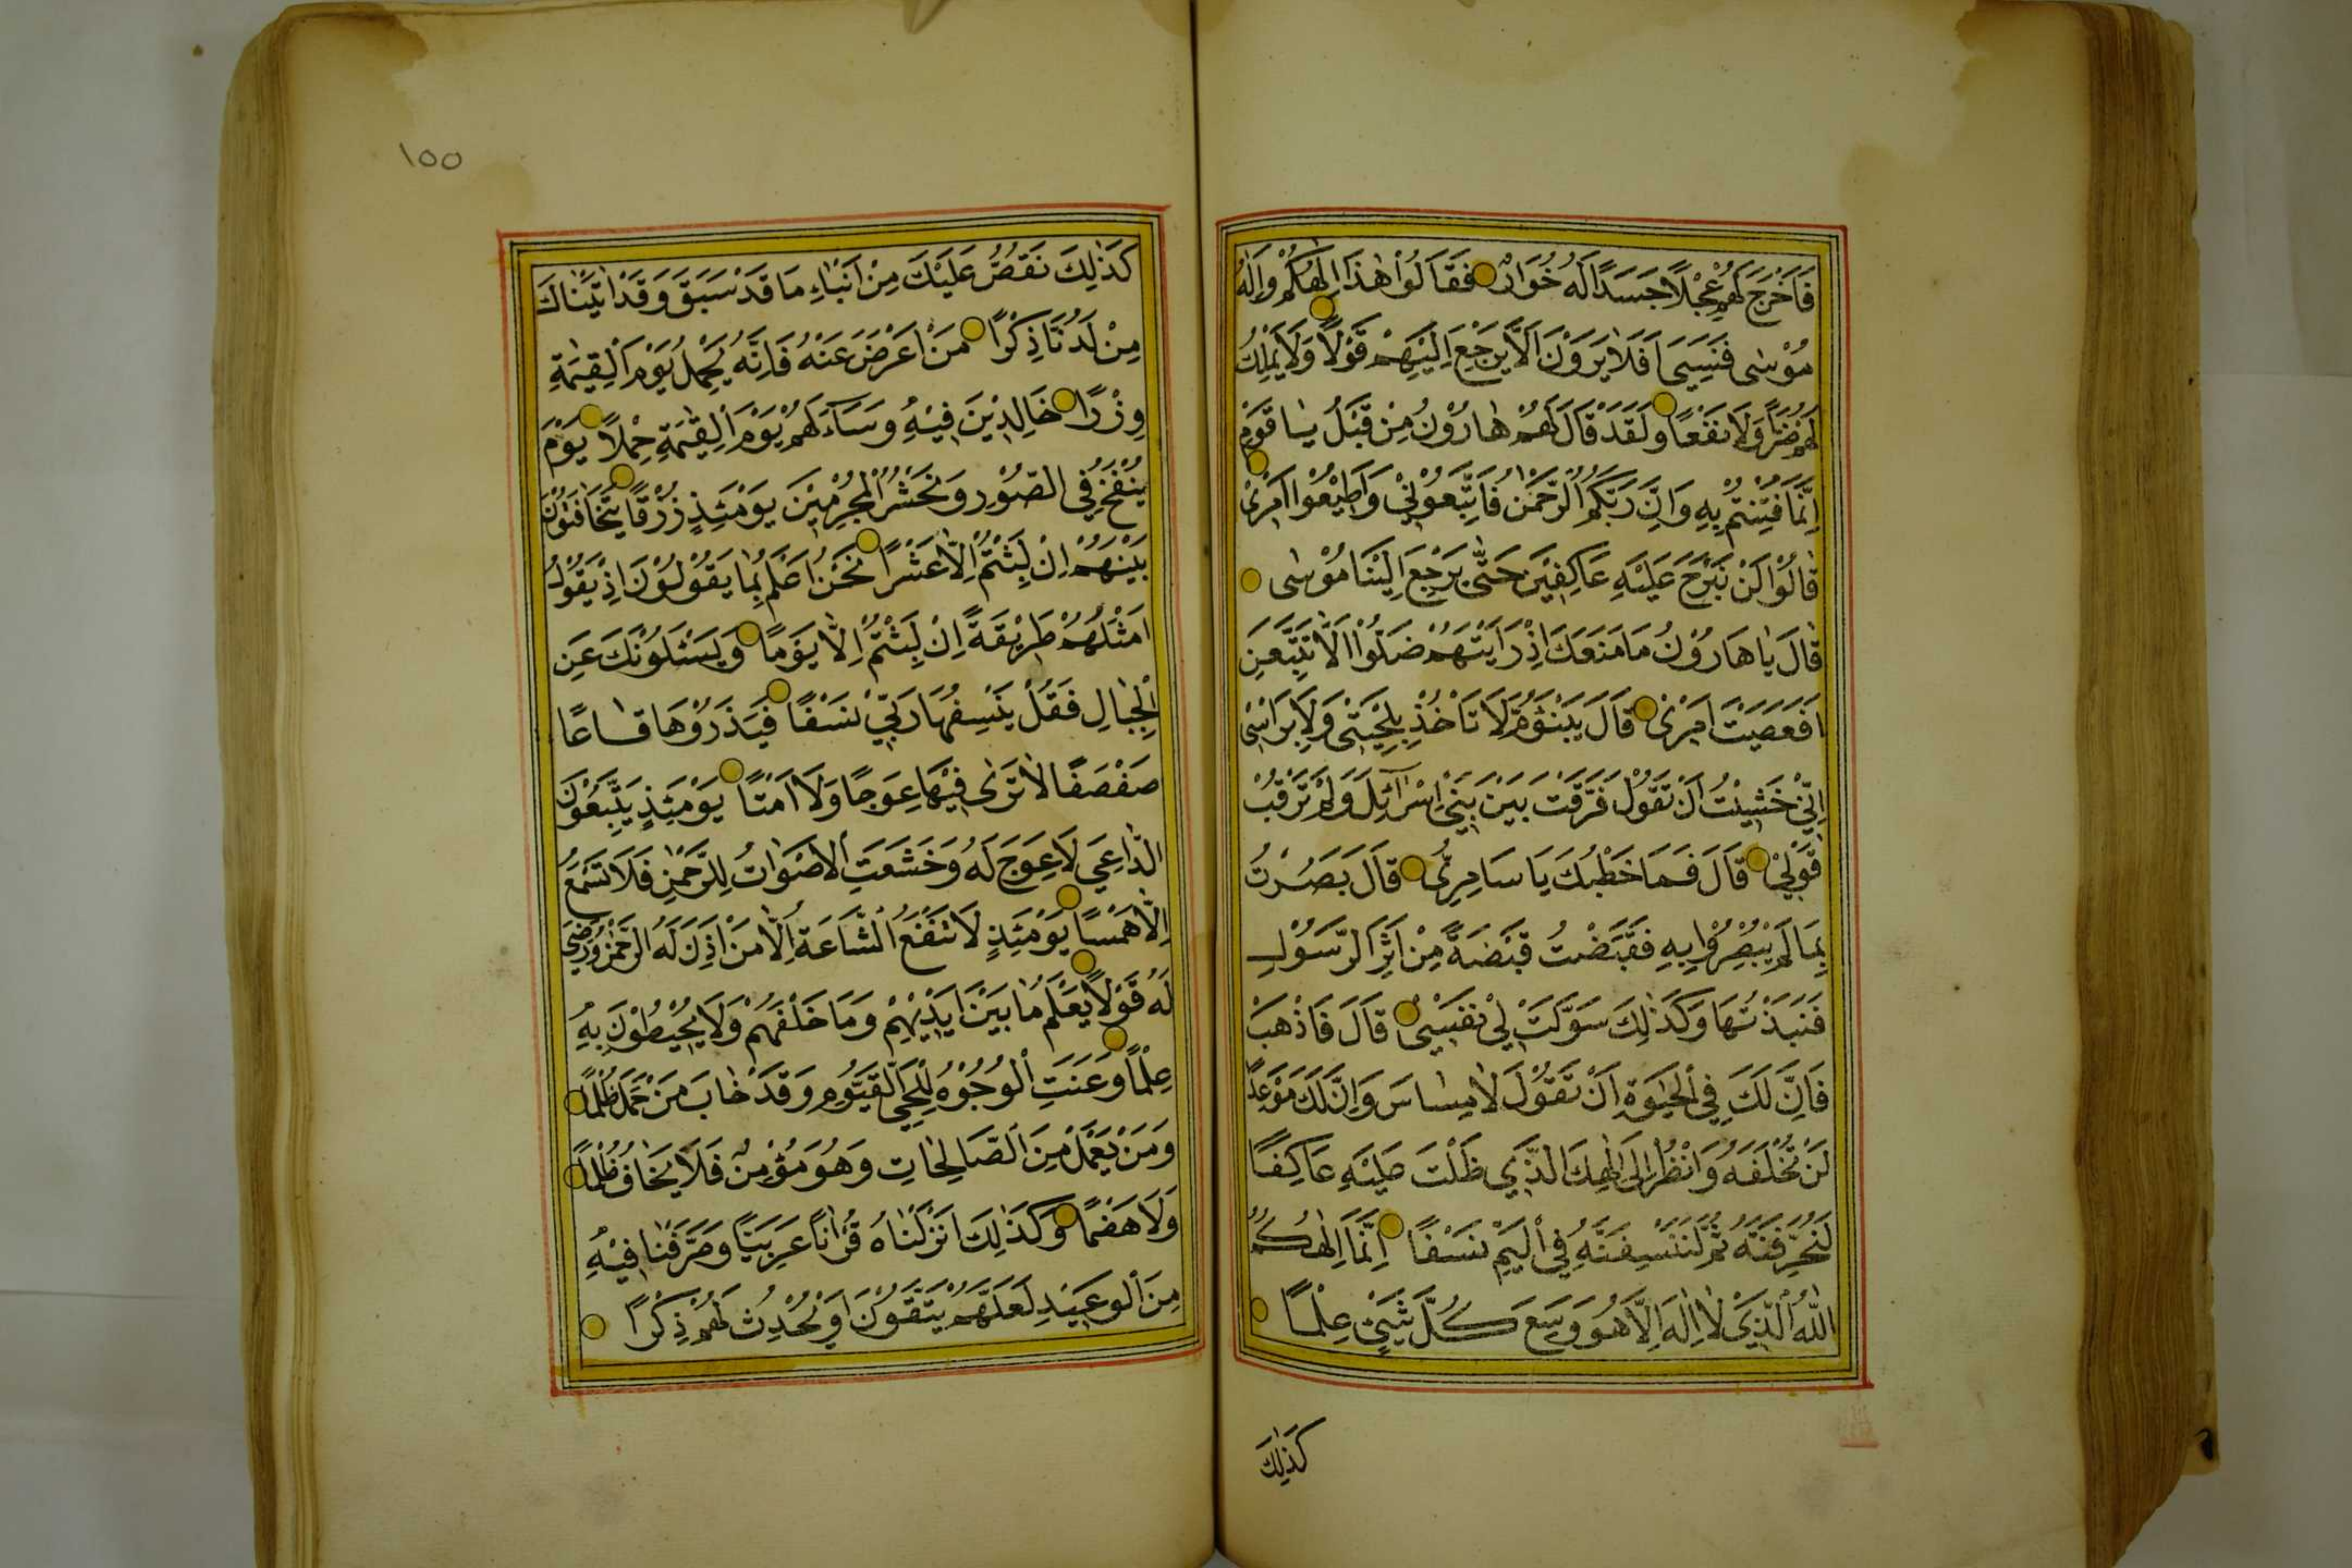 فَاَخْرَجَ لَهُمْ عِجْلًا جَسَدًا لَهُ خُوَارٌ فَقَالُوْا هٰذَا اِلٰهُكُمْ وَاِلٰهُ
مُوْسٰى فَنَسِيَ اَفَلَا يَرَوْنَ اَلَّا يَرْجِعَ اِلَيْهِمْ قَوْلًا وَلَا يَمْلِكُ
لَهُمْ ضَرًّا وَلَا نَفْعًا وَلَقَدْ قَالَ لَهُمْ هَارُوْنُ مِنْ قَبْلُ يَا قَوْمِ
اِنَّمَا فُتِنْتُمْ بِهِ وَاِنَّ رَبَّكُمُ الرَّحْمٰنُ فَاتَّبِعُوْنِيْ وَاَطِيْعُوْا اَمْرِيْ
قَالُوْا لَنْ نَبْرَحَ عَلَيْهِ عَاكِفِيْنَ حَتّٰى يَرْجِعَ اِلَيْنَا مُوْسٰى
قَالَ يَا هَارُوْنُ مَا مَنَعَكَ اِذْ رَاَيْتَهُمْ ضَلُّوْا اَلَّا تَتَّبِعَنِ
اَفَعَصَيْتَ اَمْرِيْ قَالَ يَبْنَؤُمَّ لَا تَاْخُذْ بِلِحْيَتِيْ وَلَا بِرَاْسِيْ
اِنِّيْ خَشِيْتُ اَنْ تَقُوْلَ فَرَّقْتَ بَيْنَ بَنِيْ اِسْرَآئِلَ وَلَمْ تَرْقُبْ
قَوْلِيْ قَالَ فَمَا خَطْبُكَ يَا سَامِرِيُّ قَالَ بَصُرْتُ
بِمَا لَمْ يَبْصُرُوْا بِهِ فَقَبَضْتُ قَبْضَةً مِنْ اَثَرِ الرَّسُوْلِ
فَنَبَذْتُهَا وَكَذٰلِكَ سَوَّلَتْ لِيْ نَفْسِيْ قَالَ فَاذْهَبْ
فَاِنَّ لَكَ فِي الْحَيٰوةِ اَنْ تَقُوْلَ لَا مِسَاسَ وَاِنَّ لَكَ مَوْعِدًا
لَنْ تُخْلَفَهُ وَانْظُرْ اِلٰى اِلٰهِكَ الَّذِيْ ظَلْتَ عَلَيْهِ عَاكِفًا
لَنُحَرِّقَنَّهُ ثُمَّ لَنَنْسِفَنَّهُ فِي الْيَمِّ نَسْفًا اِنَّمَا اِلٰهُكُمُ
اللّٰهُ الَّذِيْ لَا اِلٰهَ اِلَّا هُوَ وَسِعَ كُلَّ شَيْئٍ عِلْمًا
كَذٰلِكَ
١٥٥
كَذٰلِكَ نَقُصُّ عَلَيْكَ مِنْ اَنْبَاءِ مَا قَدْ سَبَقَ وَقَدْ اٰتَيْنَاكَ
مِنْ لَدُنَّا ذِكْرًا مَنْ اَعْرَضَ عَنْهُ فَاِنَّهُ يَحْمِلُ يَوْمَ الْقِيٰمَةِ
وِزْرًا خَالِدِيْنَ فِيْهِ وَسَآءَ لَهُمْ يَوْمَ الْقِيٰمَةِ حِمْلًا يَوْمَ
يُنْفَخُ فِي الصُّوْرِ وَنَحْشُرُ الْمُجْرِمِيْنَ يَوْمَئِذٍ زُرْقًا يَتَخَافَتُوْنَ
بَيْنَهُمْ اِنْ لَبِثْتُمْ اِلَّا عَشْرًا نَحْنُ اَعْلَمُ بِمَا يَقُوْلُوْنَ اِذْ يَقُوْلُ
اَمْثَلُهُمْ طَرِيْقَةً اِنْ لَبِثْتُمْ اِلَّا يَوْمًا وَيَسْئَلُوْنَكَ عَنِ
الْجِبَالِ فَقُلْ يَنْسِفُهَا رَبِّيْ نَسْفًا فَيَذَرُوْهَا قَاعًا
صَفْصَفًا لَا تَرٰى فِيْهَا عِوَجًا وَلَا اَمْتًا يَوْمَئِذٍ يَتَّبِعُوْنَ
الدَّاعِيَ لَا عِوَجَ لَهُ وَخَشَعَتِ الْاَصْوَاتُ لِلرَّحْمٰنِ فَلَا تَسْمَعُ
اِلَّا هَمْسًا يَوْمَئِذٍ لَا تَنْفَعُ الشَّاعَةُ اِلَّا مَنْ اَذِنَ لَهُ الرَّحْمٰنُ وَرَضِيَ
لَهُ قَوْلًا يَعْلَمُ مَا بَيْنَ اَيْدِيْهِمْ وَمَا خَلْفَهُمْ وَلَا يُحِيْطُوْنَ بِهِ
عِلْمًا وَعَنَتِ الْوُجُوْهُ لِلْحَيِّ الْقَيُّوْمِ وَقَدْ خَابَ مَنْ حَمَلَ ظُلْمًا
وَمَنْ يَعْمَلْ مِنَ الصَّالِحَاتِ وَهُوَ مُؤْمِنٌ فَلَا يَخَافُ ظُلْمًا
وَلَا هَضْمًا وَكَذٰلِكَ اَنْزَلْنَاهُ قُرْاٰنًا عَرَبِيًّا وَصَرَّفْنَا فِيْهِ
مِنَ الْوَعِيْدِ لَعَلَّهُمْ يَتَّقُوْنَ اَوْ يُحْدِثُ لَهُمْ ذِكْرًا